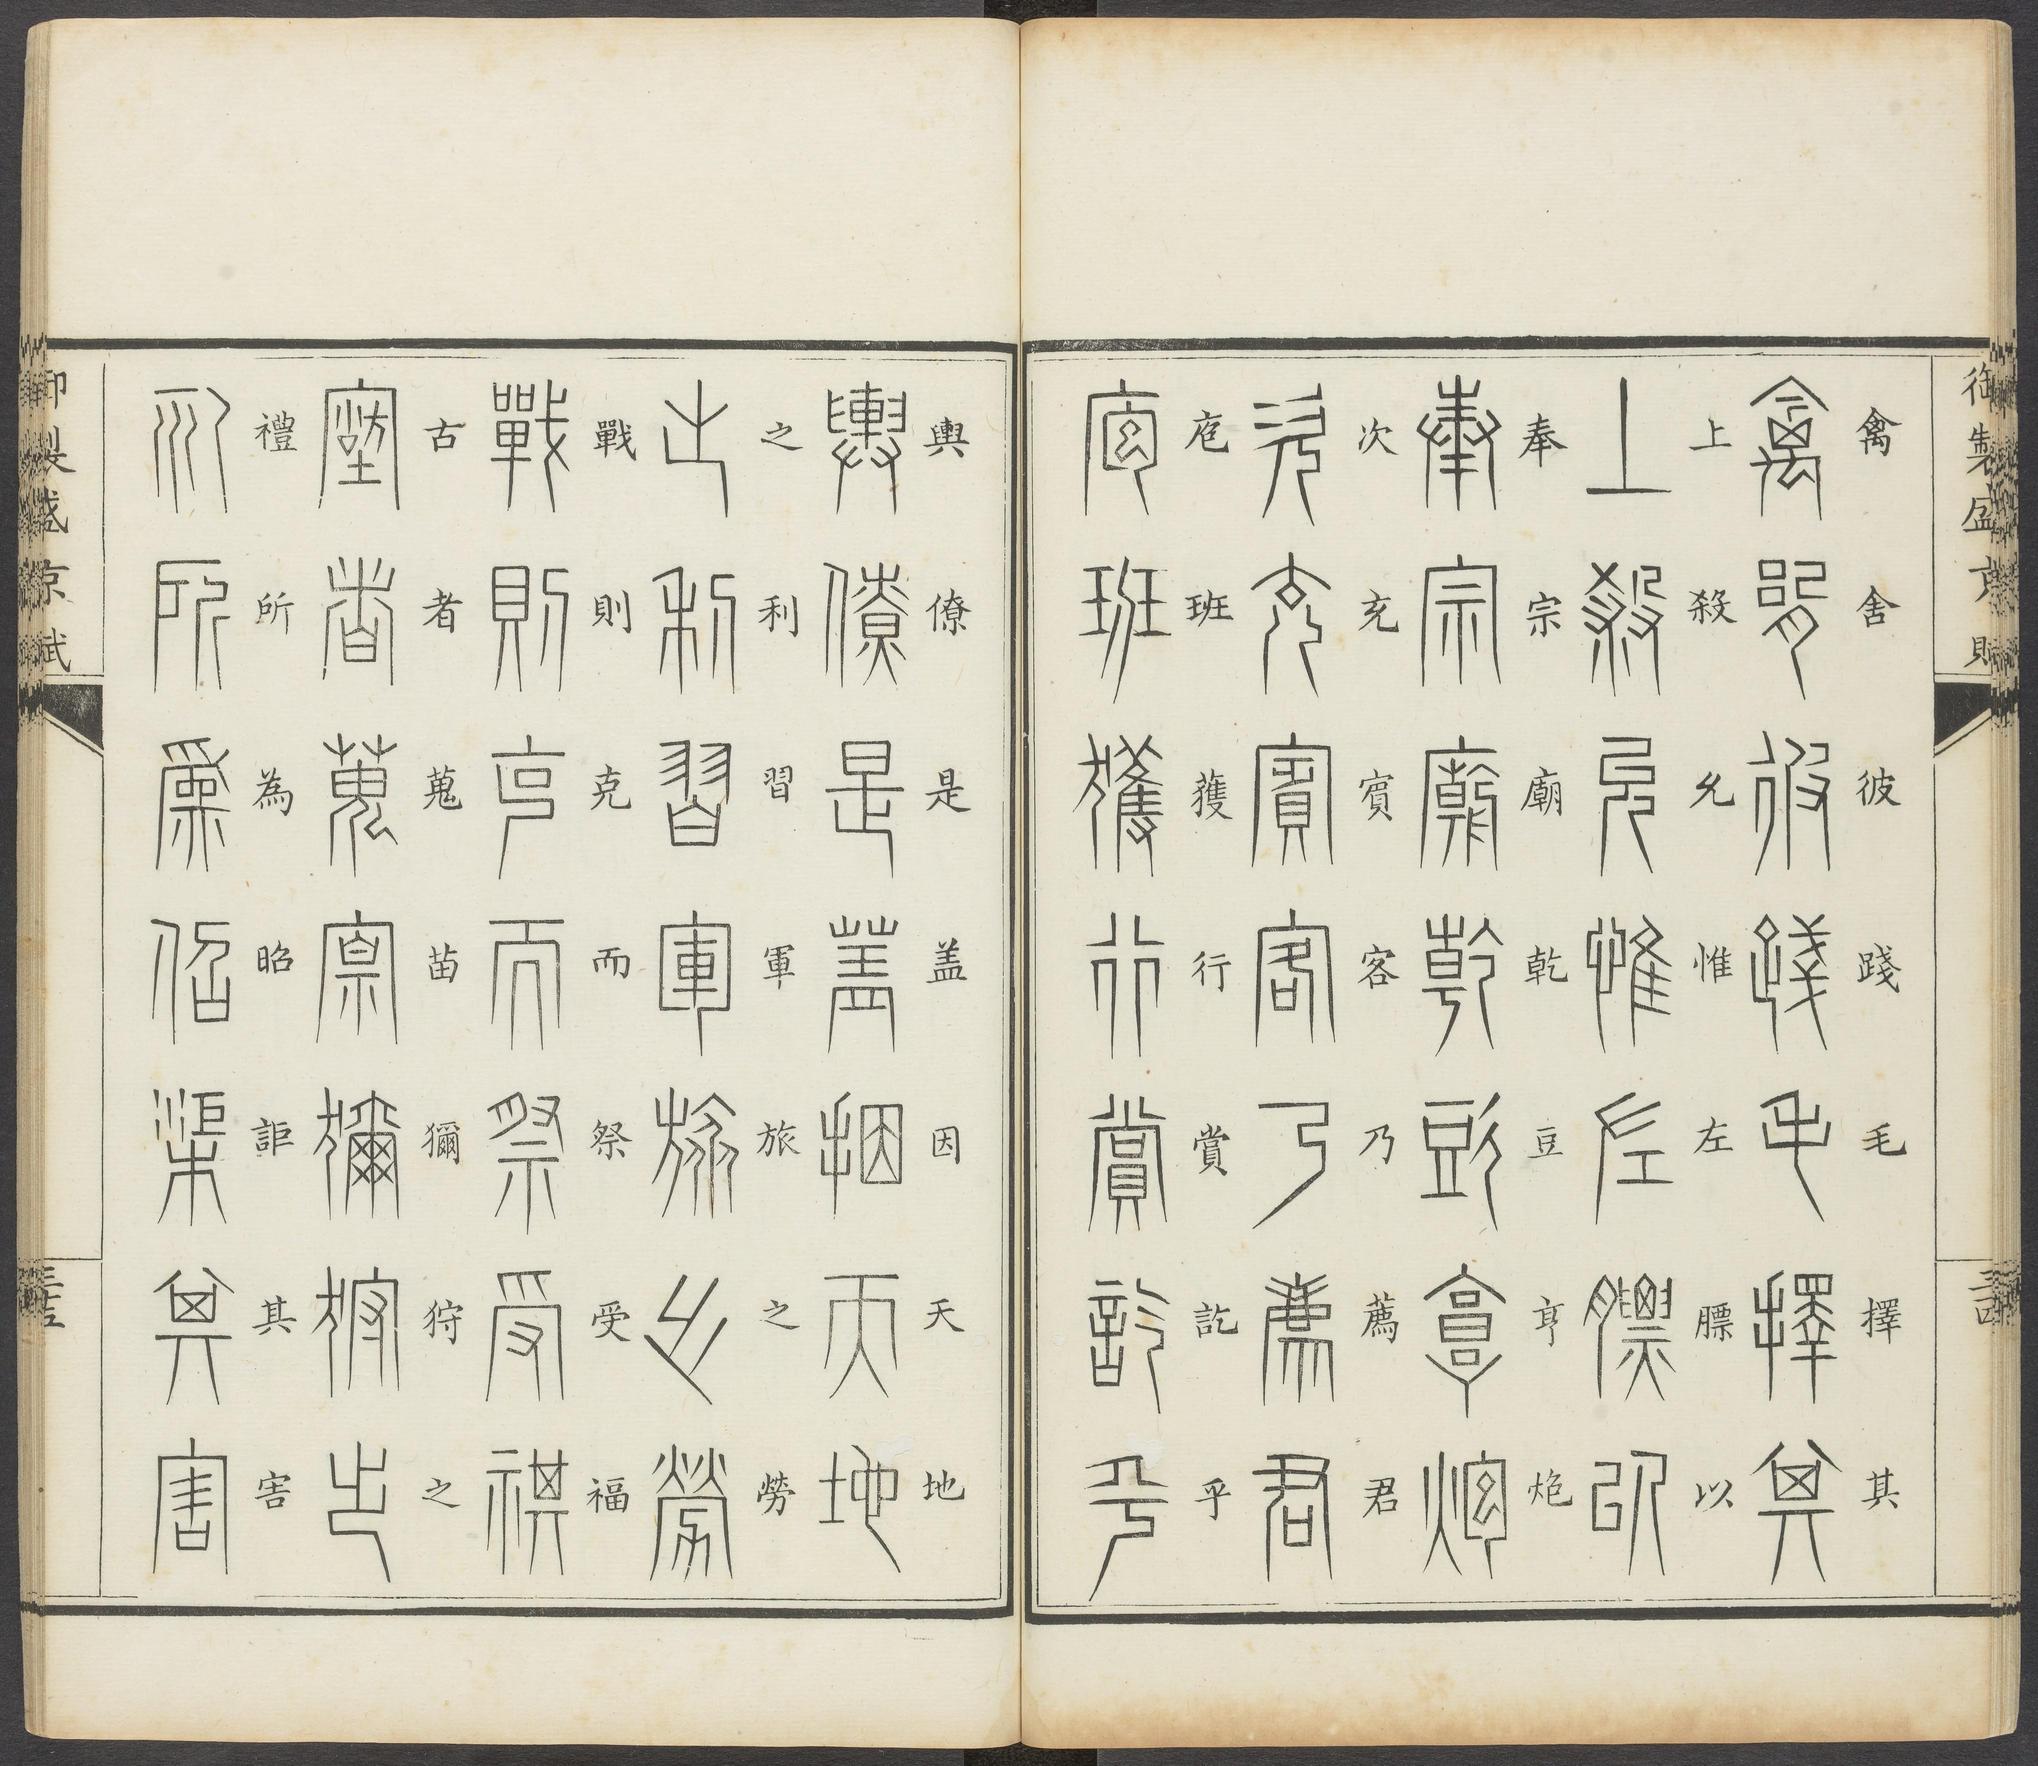 御製盛京賦
禽舍彼踐毛擇其
上殺允惟左臕以
奉宗廟乾豆亨炮
次充賓客乃薦君
庖班獲行賞訖乎
輿僚是盖因天地
之利習軍旅之勞
戰則克而祭受福
古者蒐苗獮狩之
禮所為昭詎其害
御製盛京賦